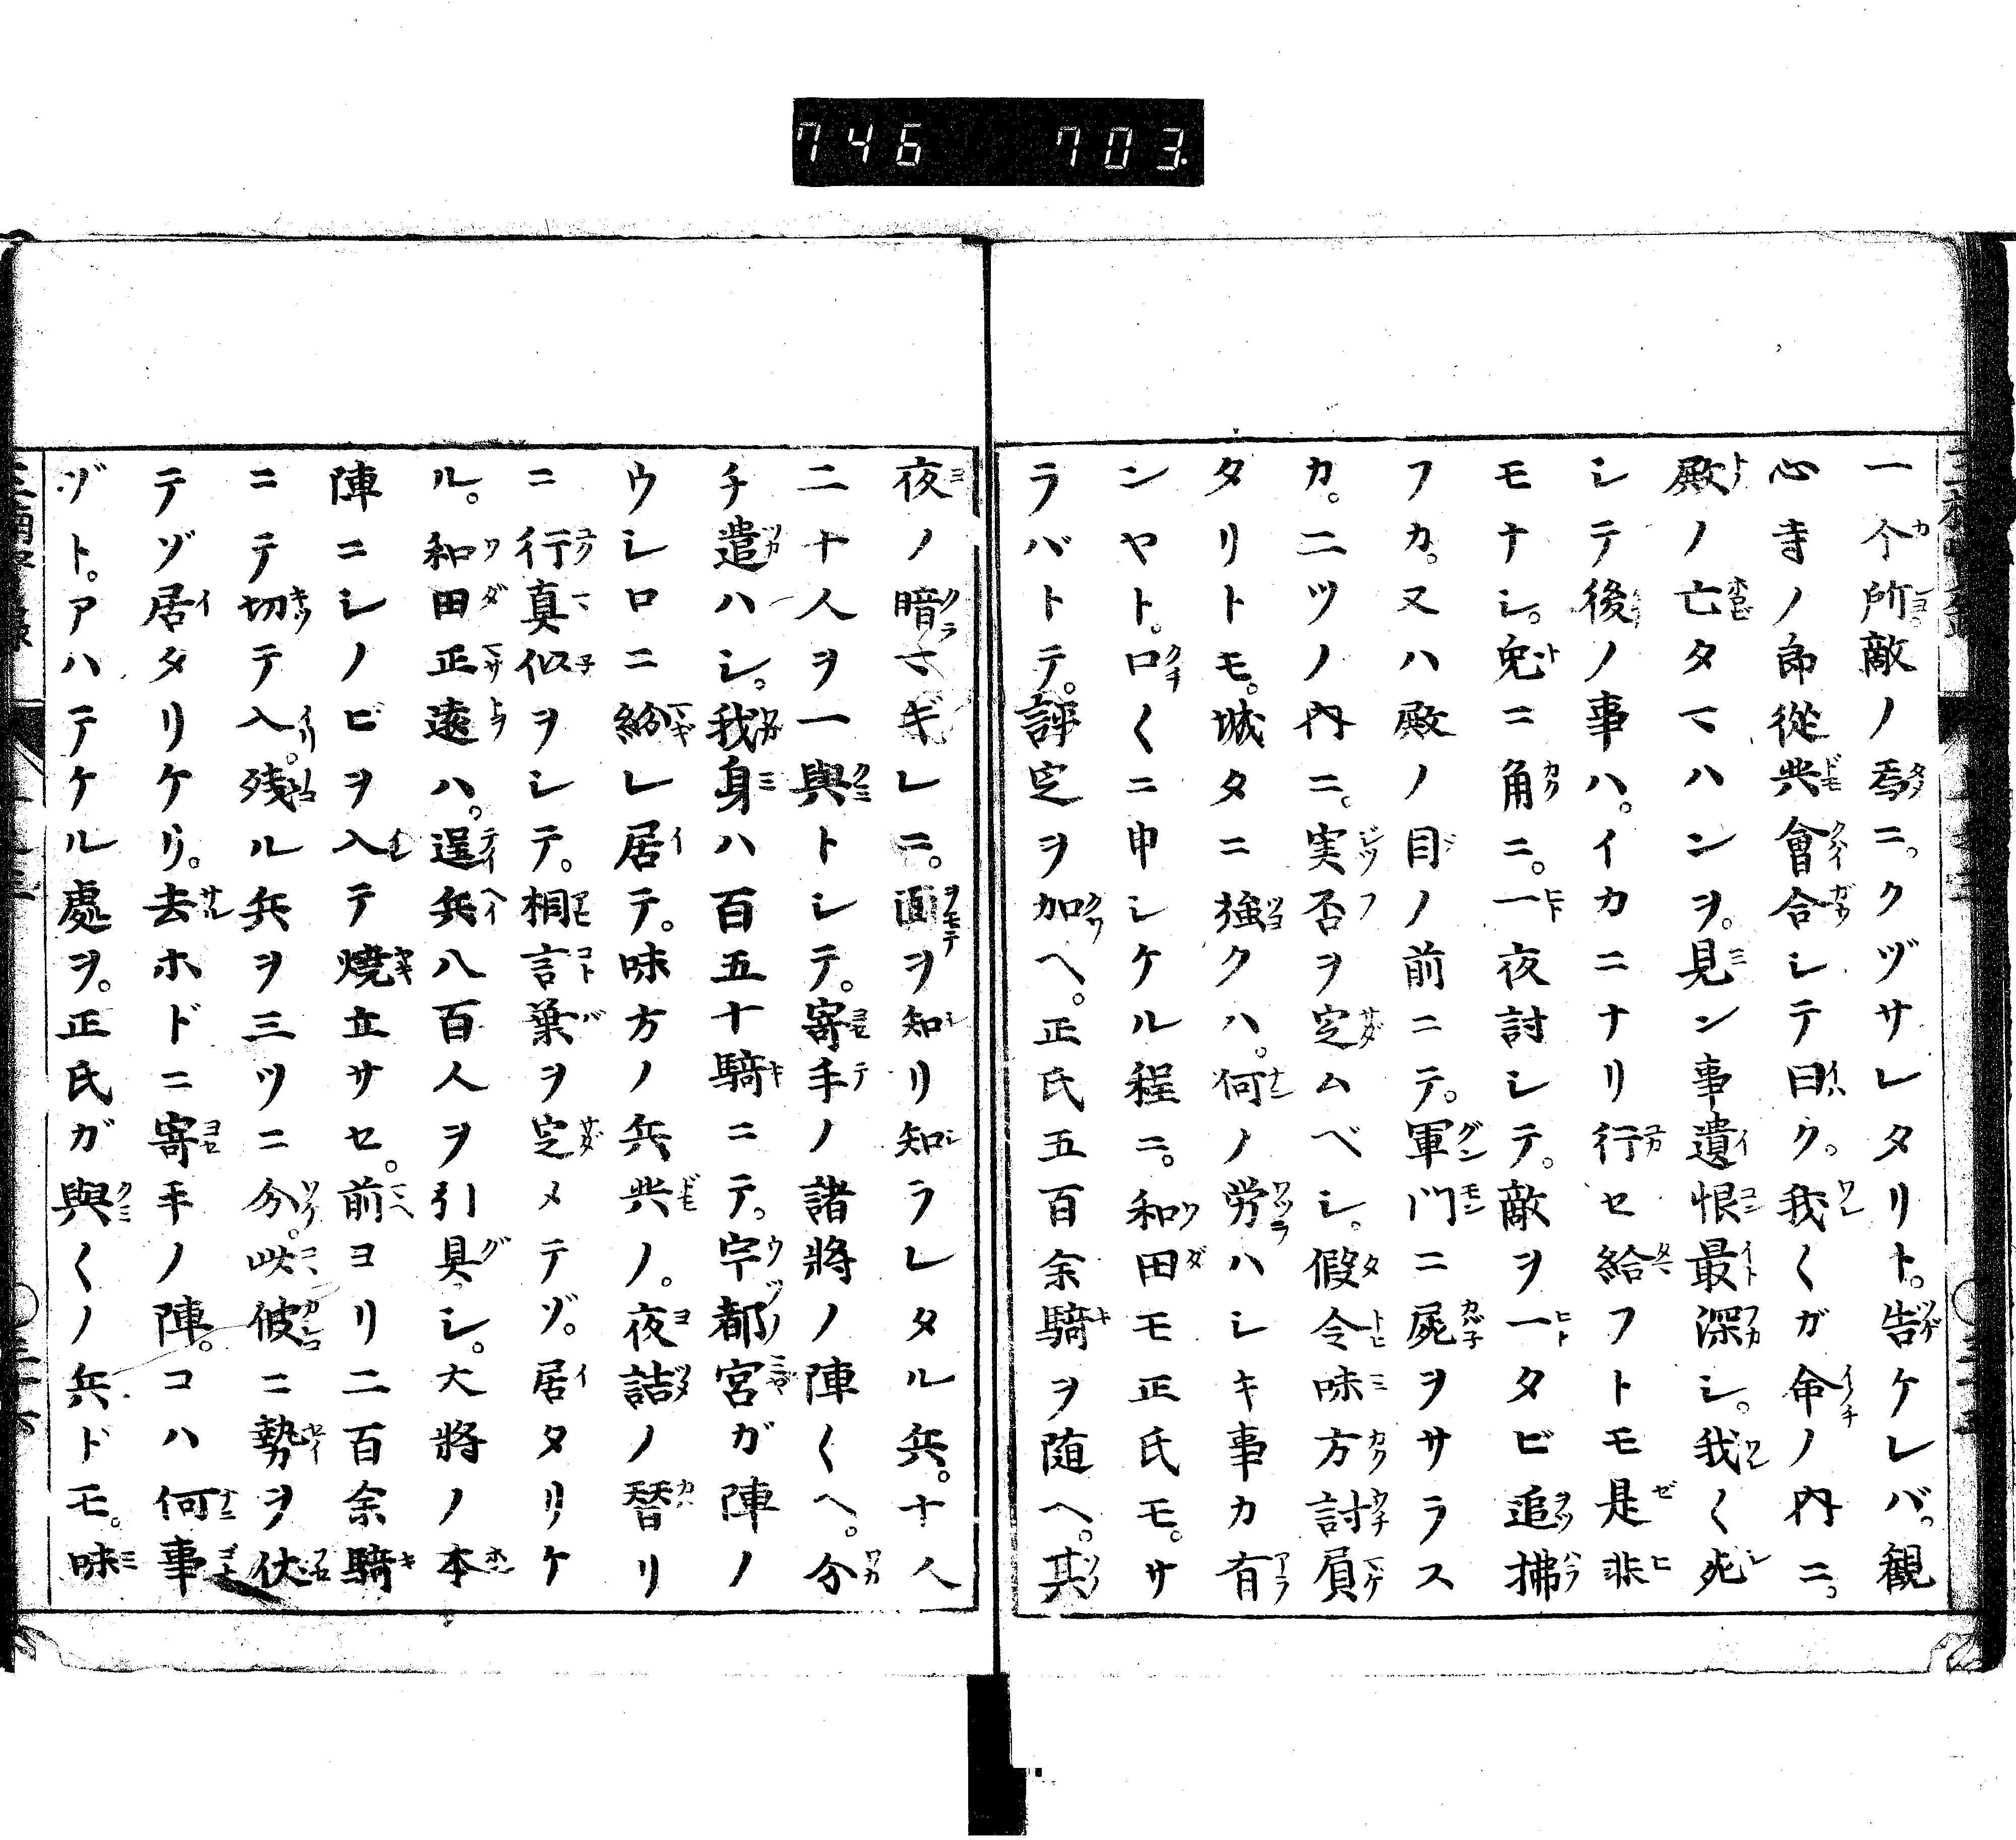 746 703.
一个所敵ノ爲ニ。クヅサレタリト。告ケレバ。観
心寺ノ郎從共會合シテ曰ク。我〱ガ命ノ内ニ。
殿ノ亡タマハンヲ。見ン事遺恨最深シ。我〱死
シテ後ノ事ハ。イカニナリ行セ給フトモ是非
モナシ。免ニ角ニ。一夜討シテ。敵ヲ一タビ追拂
フカ。又ハ殿ノ目ノ前ニテ。軍門ニ屍ヲサラス
カ。二ツノ内ニ。実否ヲ定ムベシ。假令味方討負
タリトモ。城タニ強クハ。何ノ労ハシキ事カ有
ンヤト。口〱ニ申シケル程ニ。和田モ正氏モ。サ
ラバトテ。評定ヲ加ヘ。正氏五百余騎ヲ随ヘ。其
夜ノ暗マギレニ。面ヲ知リ知ラレタル兵。十人
二十人ヲ一與トシテ。寄手ノ諸將ノ陣〱ヘ。分
チ遣ハシ。我身ハ百五十騎ニテ。宇都宮ガ陣ノ
ウシロニ紛レ居テ。味方ノ兵共ノ。夜詰ノ替リ
ニ行真似ヲシテ。相言葉ヲ定メテゾ。居タリケ
ル。和田正遠ハ。逞兵八百人ヲ引具シ。大將ノ本
陣ニシノビヲ入テ燒立サセ。前ヨリ二百余騎
ニテ切テ入。残ル兵ヲ三ツニ分。此彼ニ勢ヲ伏
テゾ居タリケリ。去ホドニ寄手ノ陣。コハ何事
ゾト。アハテケル處ヲ。正氏ガ與〱ノ兵ドモ。味